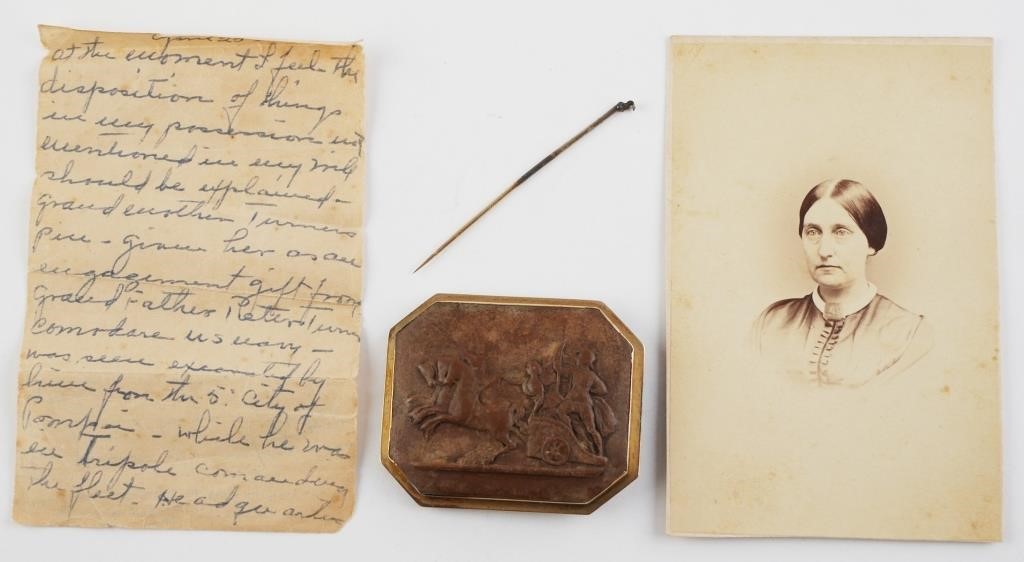 at the moment I feel the
disposition of things
in my possession not
mentioned in my will
should be explained -
grandmother Turners
pin - given her as an
engagement gift from
Grand Father Peter Turn
comodare us navy -
was seen excavated by
him from the 5. City of
Pompei - while he was
in Tripole comanding
the fleet. Headquarters